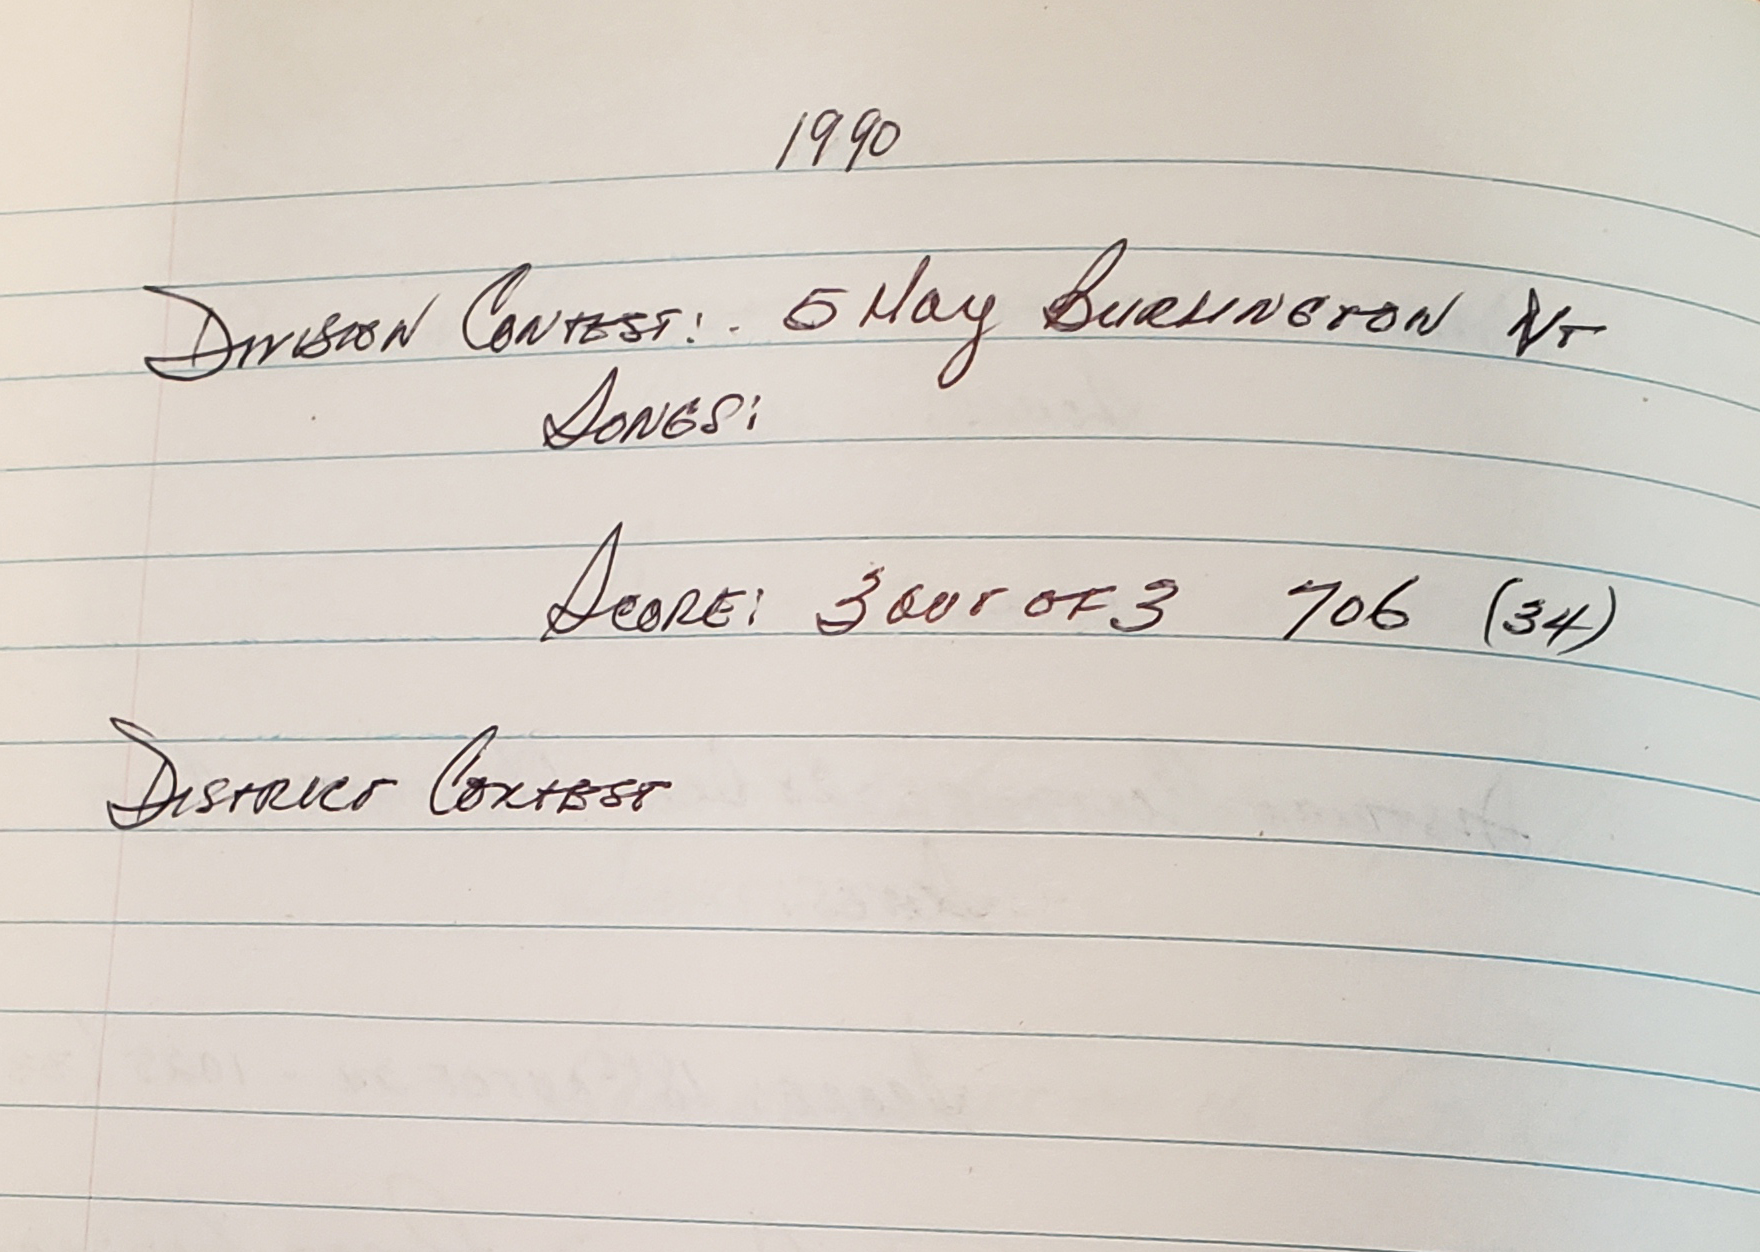 1990
Division Contest: 5 May Burlington Vt
Songs:
Score: 3 out of 3 706 (34)
District Contest